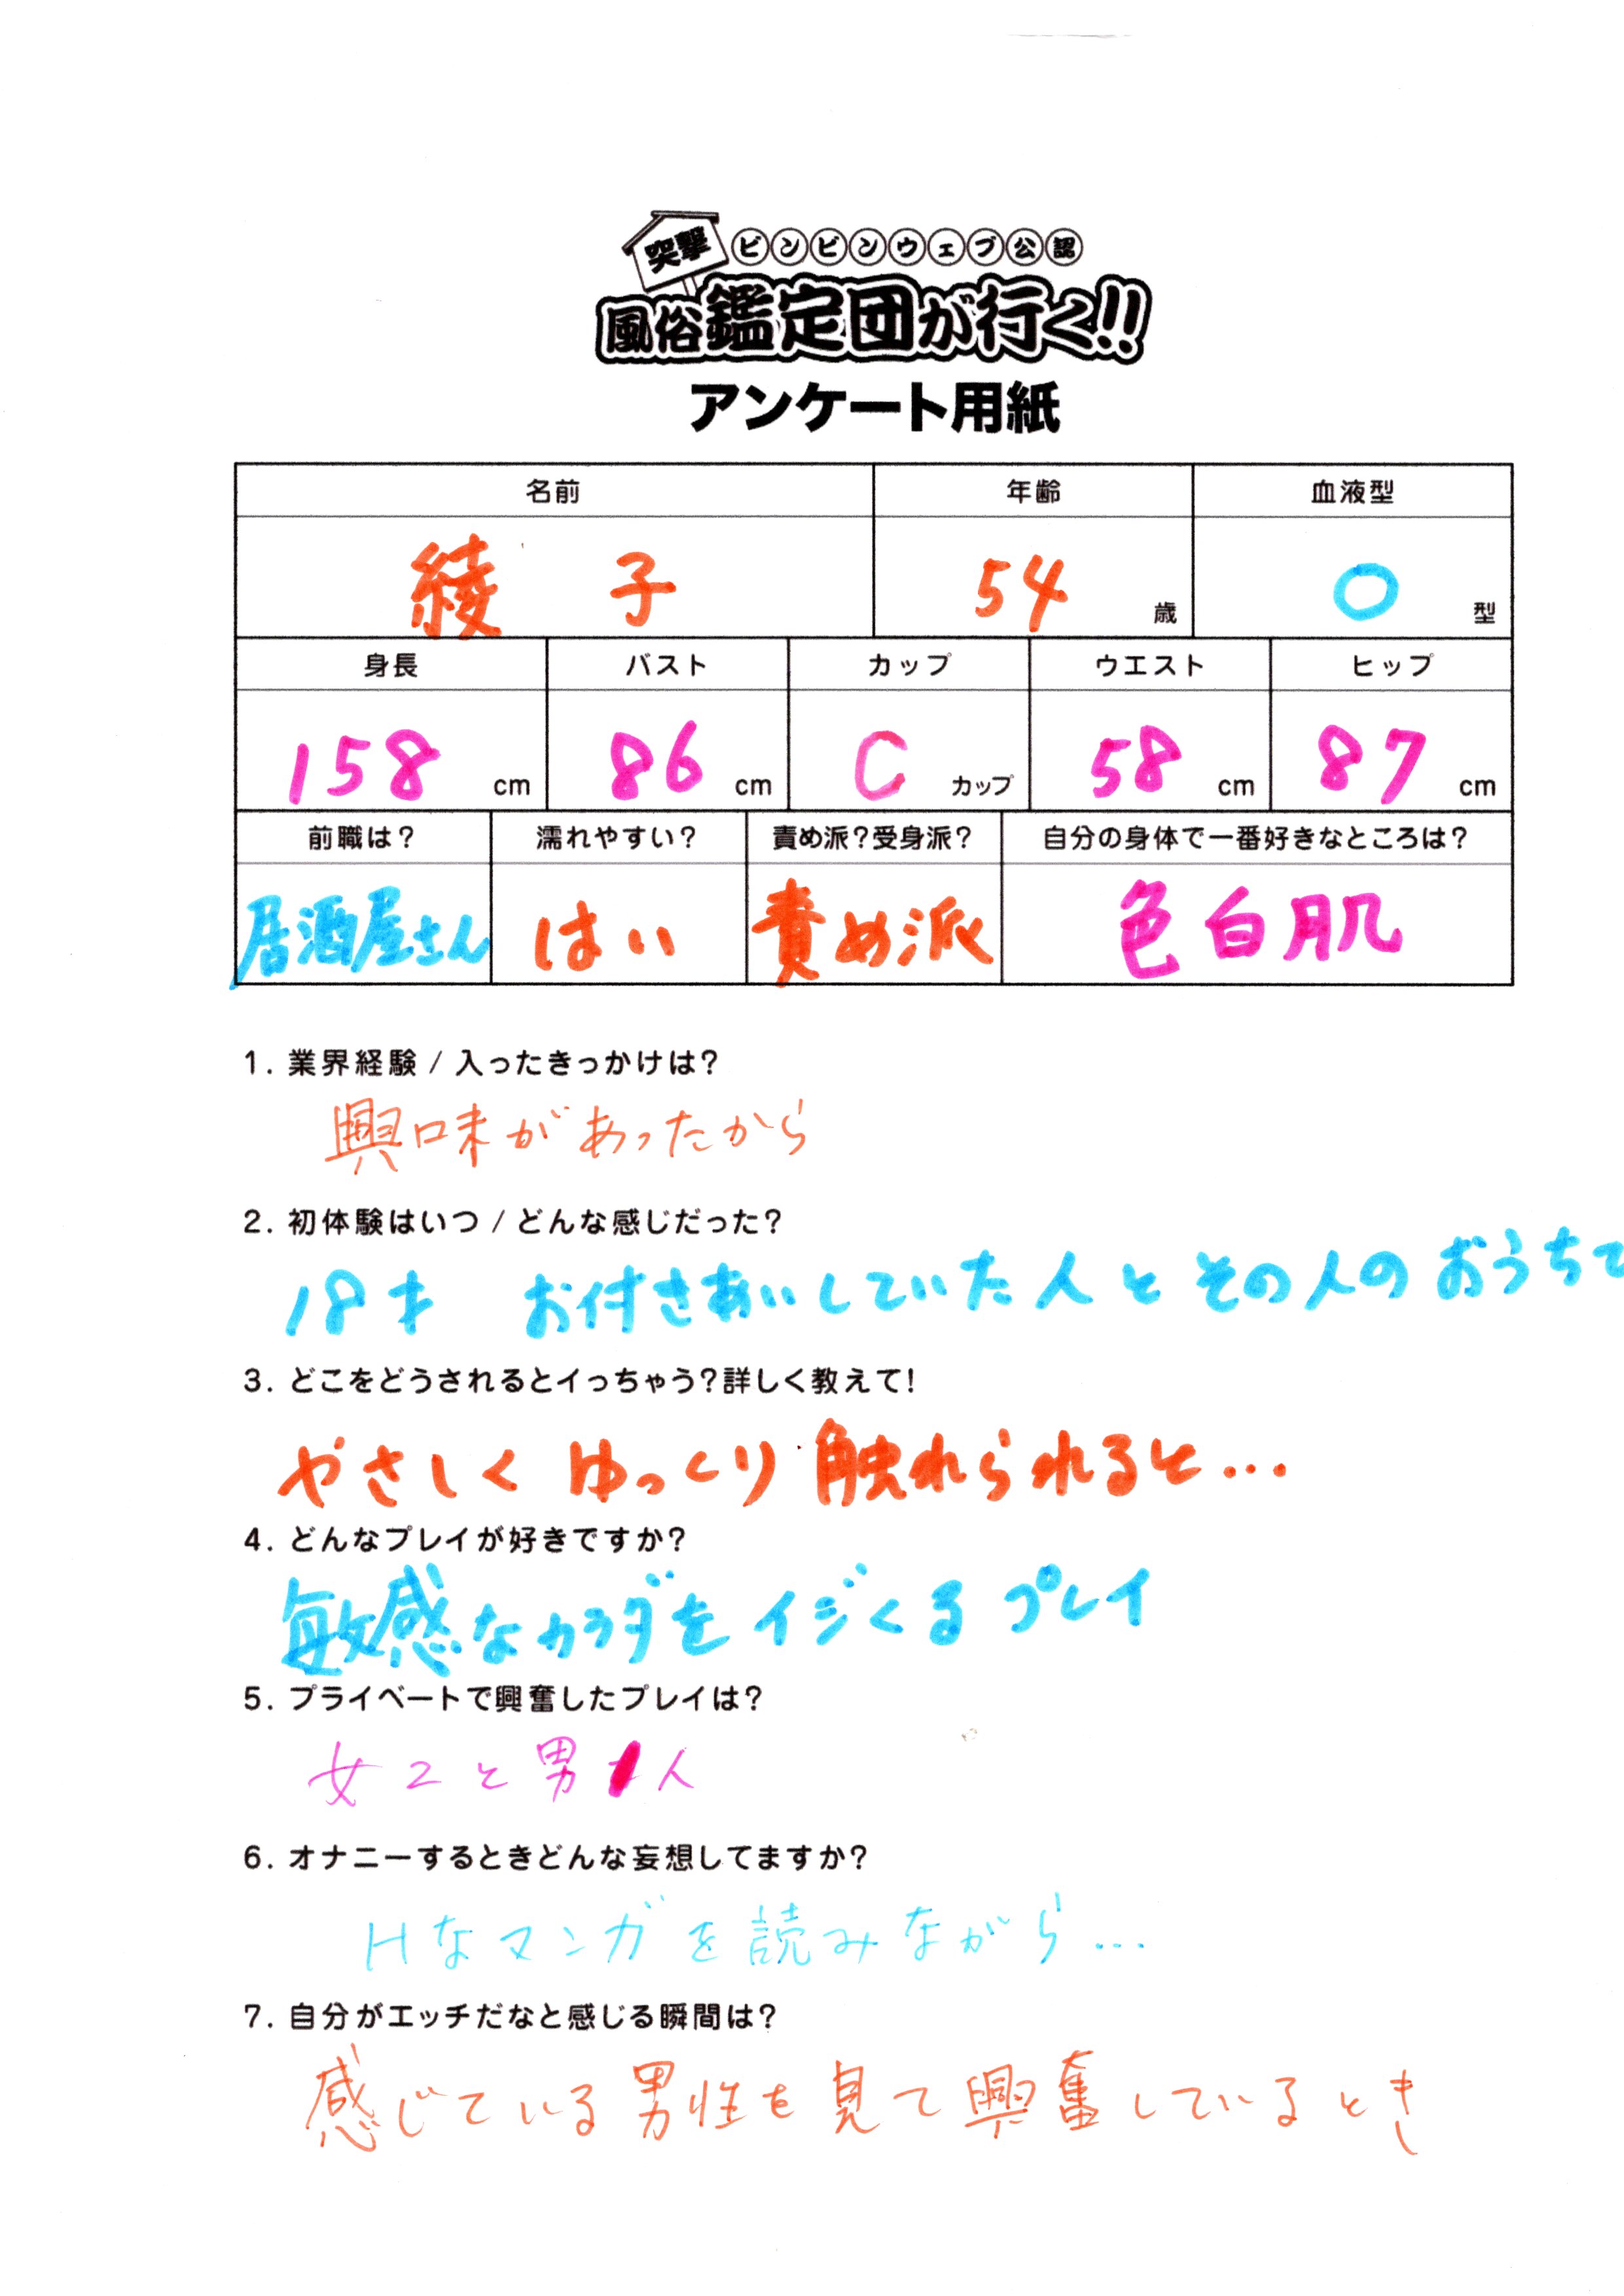 突撃 ビンビンウェブ公認
風俗鑑定団が行く!!
アンケート用紙
名前 年齢 血液型
綾子 54歳 O型
身長 バスト カップ ウエスト ヒップ
158cm 86cm Cカップ 58cm 87cm
前職は? 濡れやすい? 責め派?受身派? 自分の身体で一番好きなところは?
居酒屋さん はい 責め派 色白肌
1. 業界経験 / 入ったきっかけは?
興味があったから
2. 初体験はいつ / どんな感じだった?
18才 お付きあいしていた人とその人のおうちで
3. どこをどうされるとイっちゃう?詳しく教えて!
やさしくゆっくり触れられると…
4. どんなプレイが好きですか?
敏感なカラダをイジくるプレイ
5. プライベートで興奮したプレイは?
女2と男1人
6. オナニーするときどんな妄想してますか?
Hなマンガを読みながら…
7. 自分がエッチだなと感じる瞬間は?
感じている男性を見て興奮しているとき